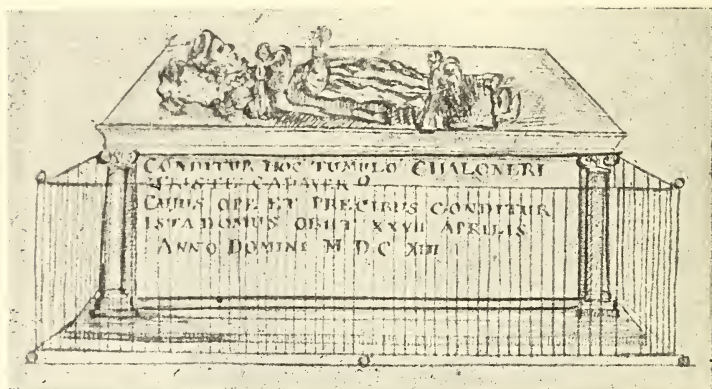 CONDITUR HOC TUMULO CHALONERI
TRISTE CADAVER
CUIUS OPE ET PRECIBUS CONDITUR
ISTA DOMUS OBIIT XXVII APRILIS
ANNO DOMINI M D C XIII